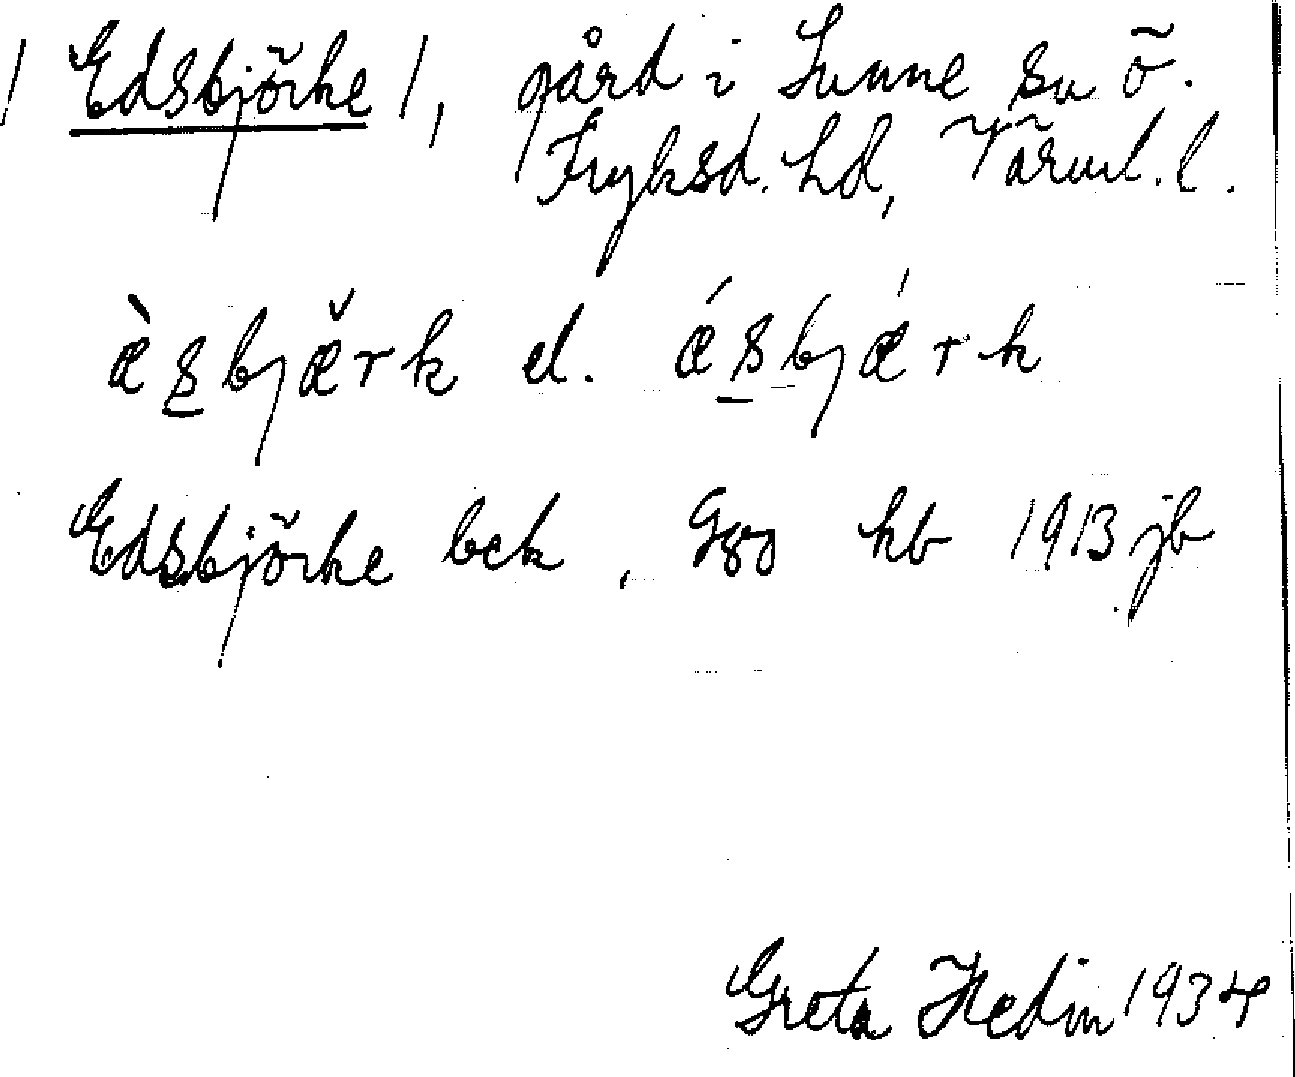 /Edsbjörke/, gård i Sunne sn ö.
Fryksd. hd, Värml. l.
æ̀s̲bjæ̌rk el. ǽs̲bjǽrk
Edsbjörke bck, Ggo kb 1913 jb
Greta Hedin 1934